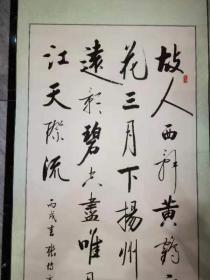 故人西辞黄鹤
花三月下揚州
遠影碧空盡唯見
江天際流
丙戌